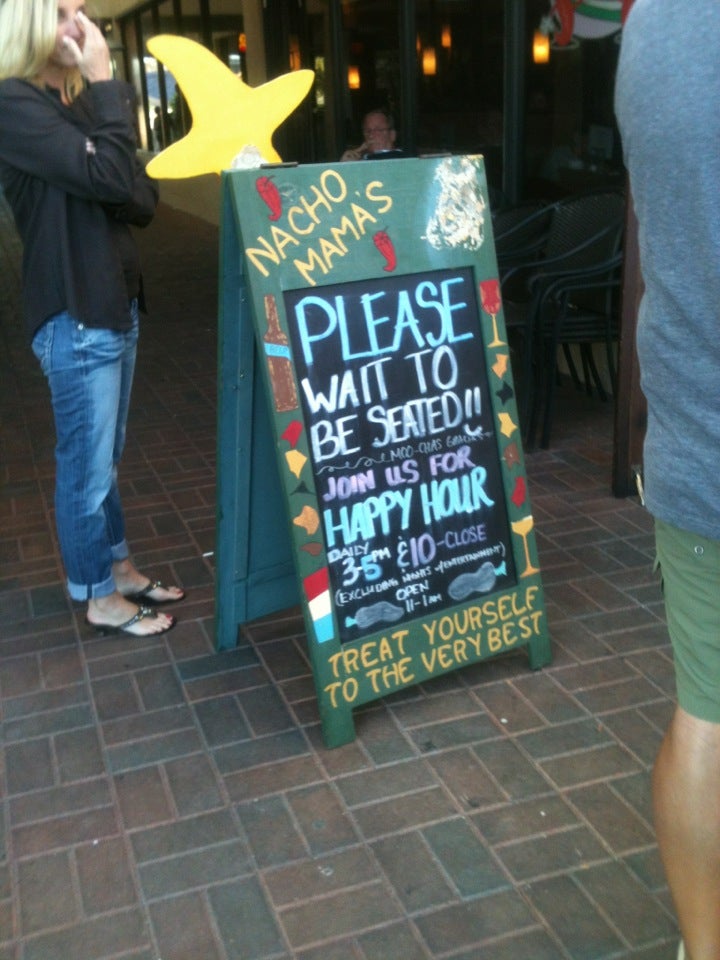 NACHO
MAMA'S
PLEASE
WAIT TO
BE SEATED!!
JOIN US FOR
HAPPY HOUR
DAILY
3-5PM & 10-CLOSE
(EXCLUDING NIGHTS w/ENTERTAINMENT)
OPEN
11-1AM
TREAT YOURSELF
TO THE VERY BEST